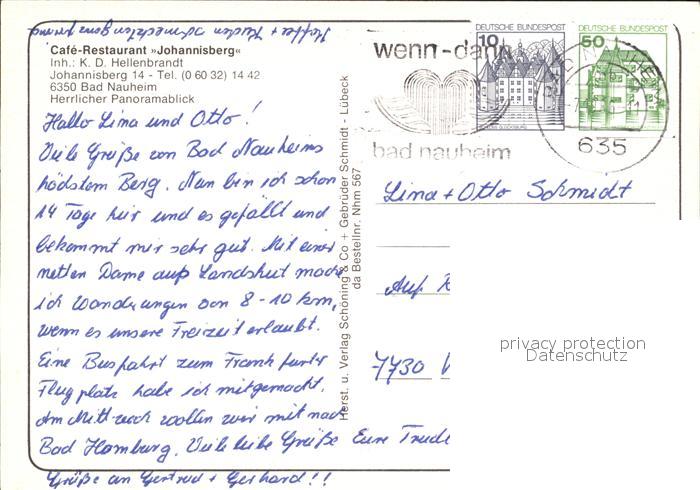 Café-Restaurant »Johannisberg«
Inh.: K. D. Hellenbrandt
Johannisberg 14 - Tel. (0 60 32) 14 42
6350 Bad Nauheim
Herrlicher Panoramablick
Hallo Lina und Otto!
Viele Grüße von Bad Nauheims
höchstem Berg. Nun bin ich schon
14 Tage hier und es gefällt und
bekommt mir sehr gut. Mit einer
netten Dame aus Landshut mache
ich Wanderungen von 8-10 km,
wenn es unsere Freizeit erlaubt.
Eine Busfahrt zum Frankfurter
Flugplatz habe ich mitgemacht.
Am Mittwoch wollen wir mit nach
Bad Homburg. Viele liebe Grüße Eure Trude
Grüße an Gertrud + Gerhard!!
Herst. u. Verlag Schöning & Co + Gebrüder Schmidt - Lübeck
da Bestellnr. Nhm 567
DEUTSCHE BUNDESPOST
10
DEUTSCHE BUNDESPOST
50
wenn-dann
bad nauheim
635
Lina + Otto Schmidt
Auf
7730 V
privacy protection
Datenschutz